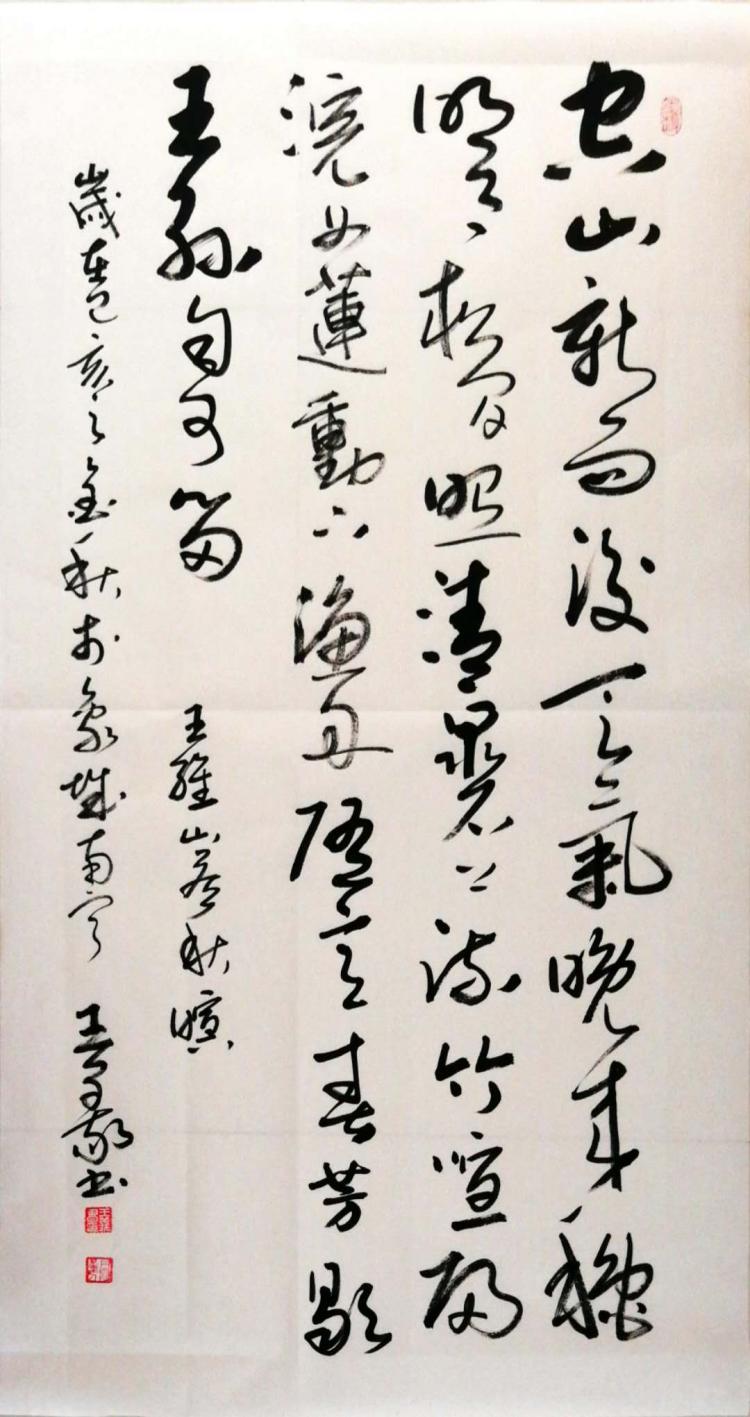 空山新雨後天氣晚来穐
明月松间照清泉石上流竹喧歸
浣女蓮動下漁舟随意春芳歇
王孫自可留
王維山居秋暝
歲在己亥之金秋於象城南宁 王豪书